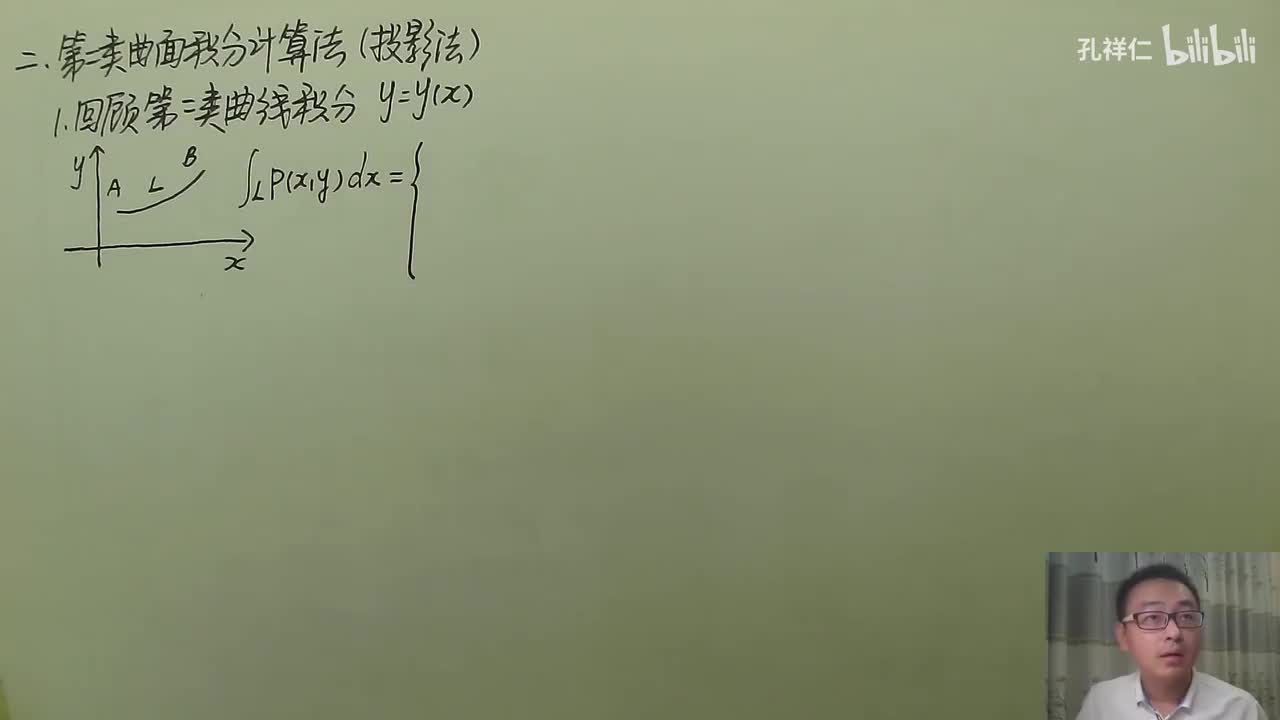 孔祥仁 bilibili
二、第二类曲面积分计算法(投影法)
1.回顾第二类曲线积分 y=y(x)
y A L B x
∫_L P(x,y)dx={